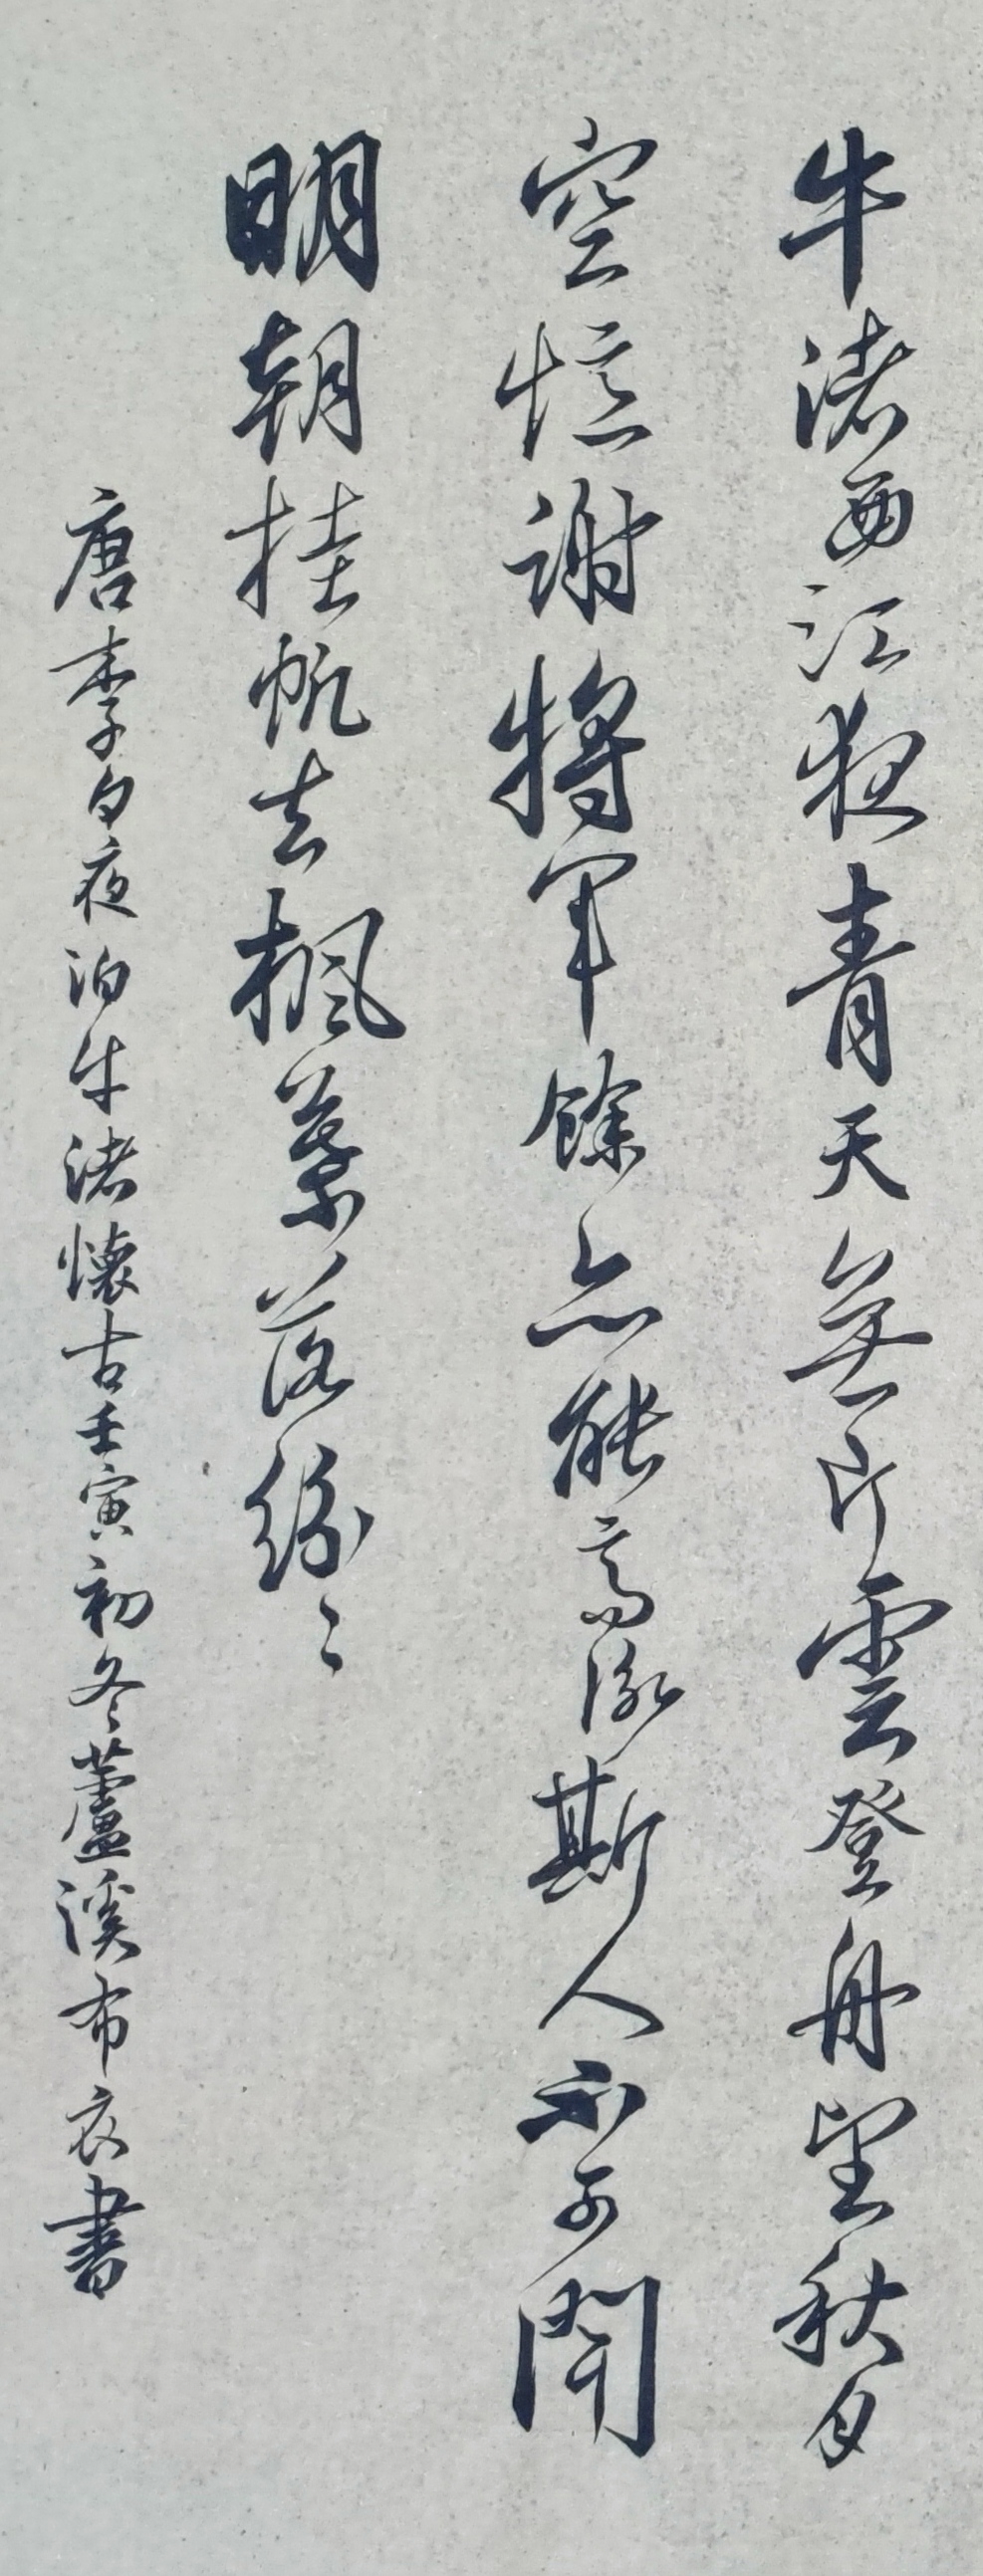 牛渚西江夜青天無片雲登舟望秋月
空憶謝將軍餘亦能高詠斯人不可聞
明朝挂帆去楓葉落紛〻
唐李白夜泊牛渚懷古壬寅初冬蘆溪布衣書